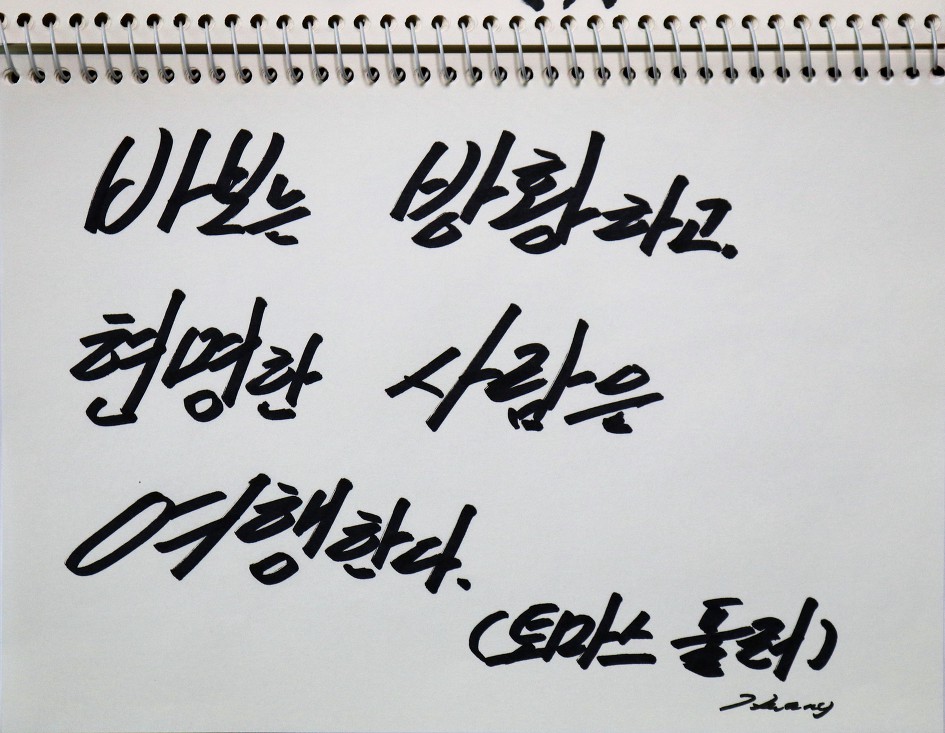 바보는 방황하고.
현명한 사람은
여행한다.
(토마스 둘러)